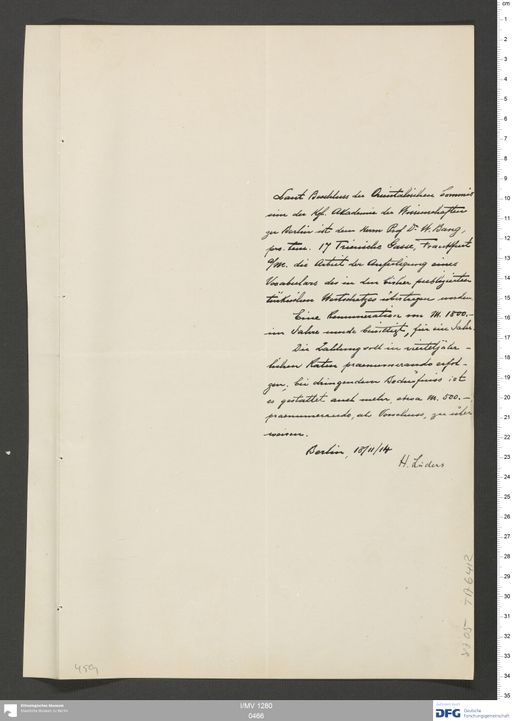 Laut Beschluss der Orientalischen Commis
sion der Kgl. Akademie der Wissenschaften
zu Berlin ist dem Herrn Prof. Dr. W. Bang,
pro. tem. 17 Trierische Gasse, Frankfurt
a/M. die Arbeit der Anfertigung eines
Vocabulars des in den bisher publizierten
türkischen Wortschatzes übertragen worden.
Eine Remuneration von M. 1800.–
im Jahre wurde bewilligt, für ein Jahr.
Die Zahlung soll in vierteljähr-
lichen Raten praenumerando erfol-
gen; bei dringendem Bedürfniss ist
es gestattet auch mehr etwa M. 500.–
praenumerando, als Vorschuss, zu über
weisen.
Berlin, 18/11/14
H. Lüders
459
TA 6412
Ethnologisches Museum
Staatliche Museen zu Berlin
I/MV 1260
0466
DFG Deutsche
Forschungsgemeinschaft
cm
1
2
3
4
5
6
7
8
9
10
11
12
13
14
15
16
17
18
19
20
21
22
23
24
25
26
27
28
29
30
31
32
33
34
35